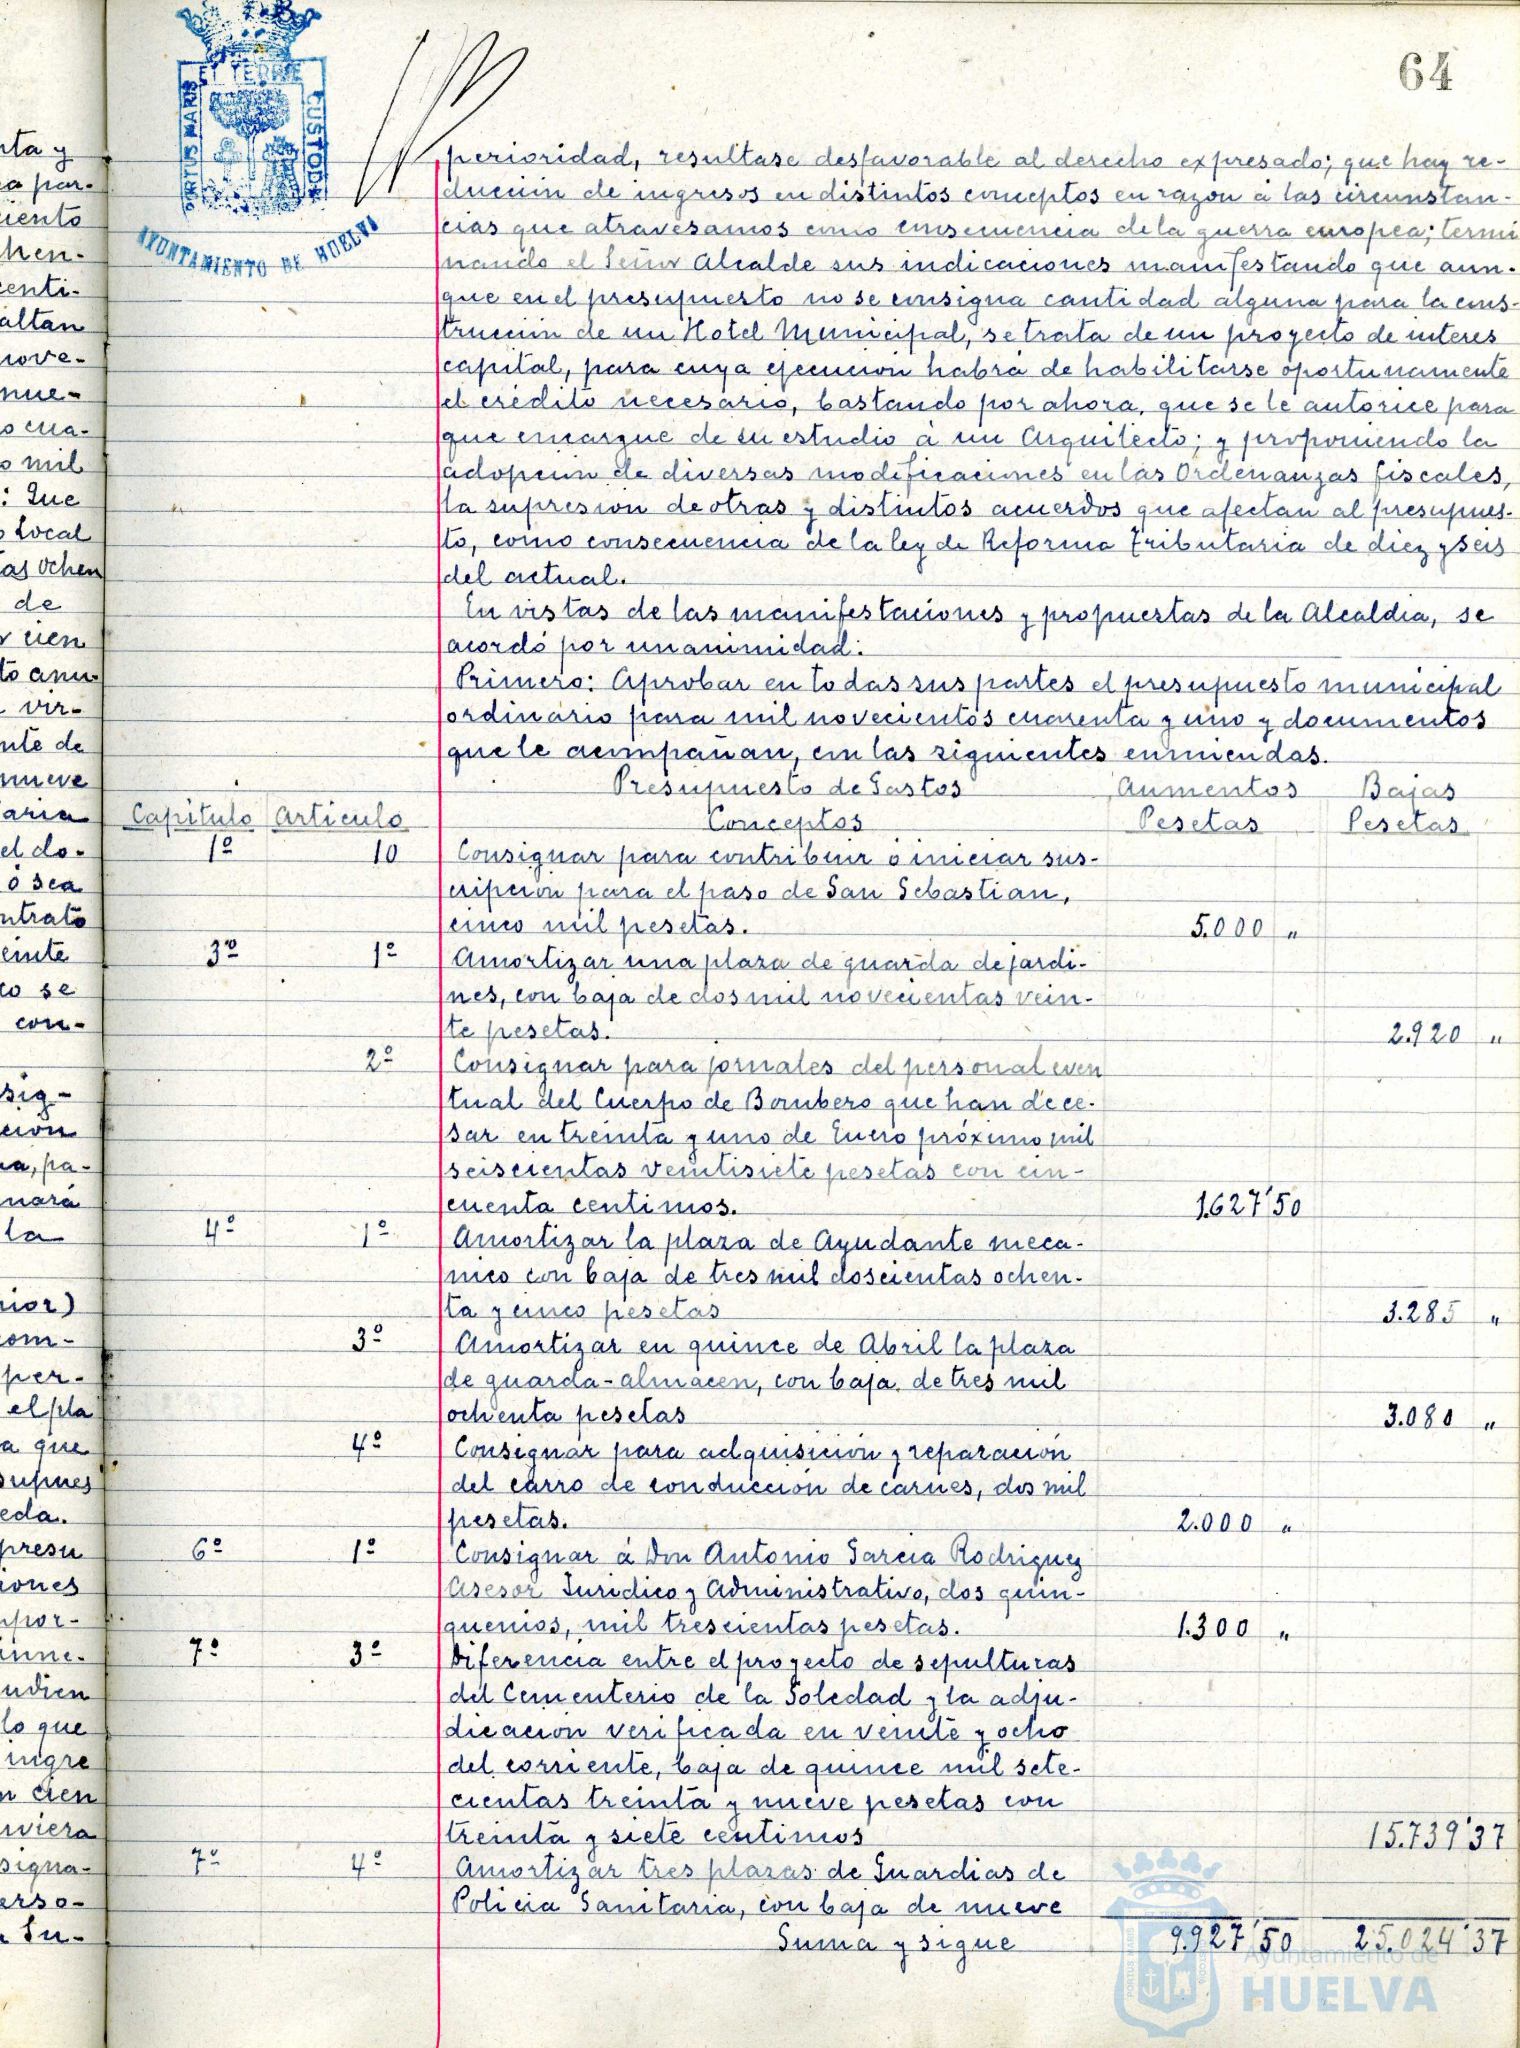 64
PORTUS MARIS ET TERRÆ CUSTODIA
AYUNTAMIENTO DE HUELVA
perioridad, resultase desfavorable al derecho expresado; que hay re-
ducción de ingresos en distintos conceptos en razon á las circunstan-
cias que atravesamos como consecuencia de la guerra europea; termi
nando el Señor Alcalde sus indicaciones manifestando que aun-
que en el presupuesto no se consigna cantidad alguna para la cons-
trucción de un Hotel Municipal, se trata de un proyecto de interes
capital, para cuya ejecucion habrá de habilitarse oportunamente
el crédito necesario, bastando por ahora, que se le autorice para
que encargue de su estudio á un Arquitecto; y proponiendo la
adopción de diversas modificaciones en las Ordenanzas fiscales,
la supresion de otras y distintos acuerdos que afectan al presupues-
to, como consecuencia de la ley de Reforma Tributaria de diez y seis
del actual.
En vistas de las manifestaciones y propuestas de la Alcaldia, se
acordó por unanimidad:
Primero: Aprobar en todas sus partes el presupuesto municipal
ordinario para mil novecientos cuarenta y uno y documentos
que le acompañan, con las siguientes enmiendas.
Presupuesto de Gastos Aumentos Bajas
Capitulo Articulo Conceptos Pesetas Pesetas
1º 10 Consignar para contribuir ó iniciar sus-
cripcion para el paso de San Sebastian,
cinco mil pesetas. 5.000 "
3º 1º Amortizar una plaza de guarda de jardi-
nes, con baja de dos mil novecientas vein-
te pesetas. 2.920 "
2º Consignar para jornales del personal even
tual del Cuerpo de Bombero que han de ce-
sar en treinta y uno de Enero próximo mil
seiscientas veintisiete pesetas con cin-
cuenta centimos. 1.627'50
4º 1º Amortizar la plaza de Ayudante meca-
nico con baja de tres mil doscientas ochen-
ta y cinco pesetas 3.285 "
3º Amortizar en quince de Abril la plaza
de guarda-almacen, con baja de tres mil
ochenta pesetas 3.080 "
4º Consignar para adquisición y reparación
del carro de conducción de carnes, dos mil
pesetas. 2.000 "
6º 1º Consignar á Don Antonio Garcia Rodriguez
Asesor Juridico y Administrativo, dos quin-
quenios, mil trescientas pesetas. 1.300 "
7º 3º Diferencia entre el proyecto de sepulturas
del Cementerio de la Soledad y la adju-
dicación verificada en veinte y ocho
del corriente, baja de quince mil sete-
cientas treinta y nueve pesetas con
treinta y siete centimos 15.739'37
7º 4º Amortizar tres plazas de Guardias de
Policia Sanitaria, con baja de nueve
Suma y sigue 9.927'50 25.024'37
Ayuntamiento de
HUELVA